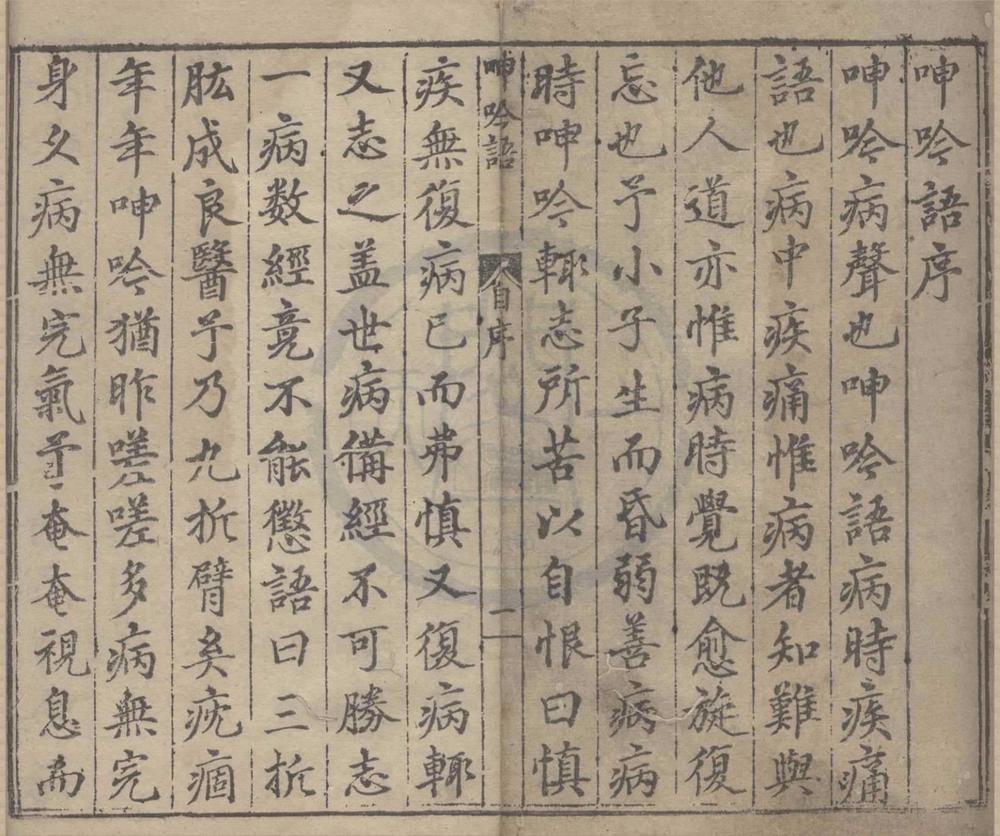 呻吟語序
呻吟病聲也呻吟語病時疾痛
語也病中疾痛惟病者知難與
他人道亦惟病時覺既愈旋復
忘也予小子生而昏弱善病病
時呻吟輒志所苦以自恨曰慎
呻吟語 自序 一
疾無復病已而弗慎又復病輒
又志之盖世病備經不可勝志
一病数經竟不能懲語曰三折
肱成良醫予乃九折臂矣疣痼
年年呻吟猶昨嗟嗟多病無完
身久病無完氣予奄奄視息而